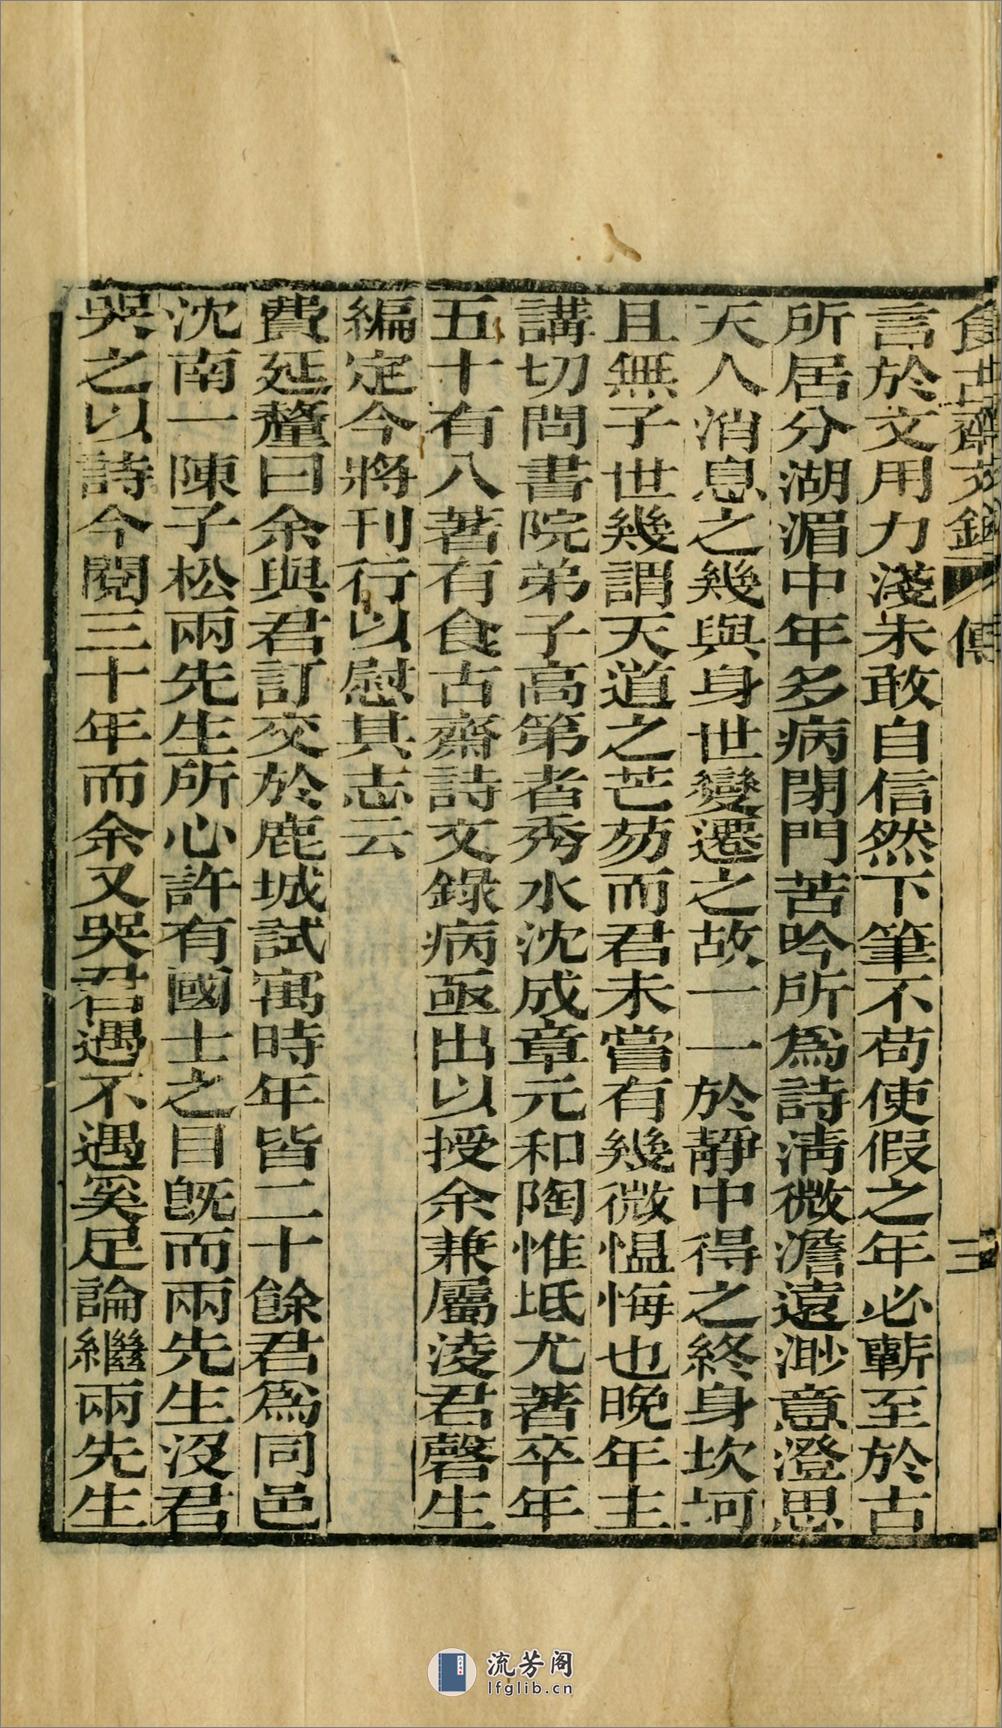 食古齋文錄 傳 三
言於文用力淺未敢自信然下筆不苟使假之年必蘄至於古
所居分湖湄中年多病閉門苦吟所爲詩淸微澹遠渺意澄思
天人消息之幾與身世變遷之故一一於靜中得之終身坎坷
且無子世幾謂天道之芒芴而君未嘗有幾微慍悔也晚年主
講切問書院弟子高第者秀水沈成章元和陶惟坻尤著卒年
五十有八著有食古齋詩文錄病亟出以授余兼屬淩君磬生
編定今將刊行以慰其志云
費延釐曰余與君訂交於鹿城試寓時年皆二十餘君爲同邑
沈南一陳子松兩先生所心許有國士之目旣而兩先生沒君
哭之以詩今閱三十年而余又哭君遇不遇奚足論繼兩先生
流芳阁
lfglib.cn